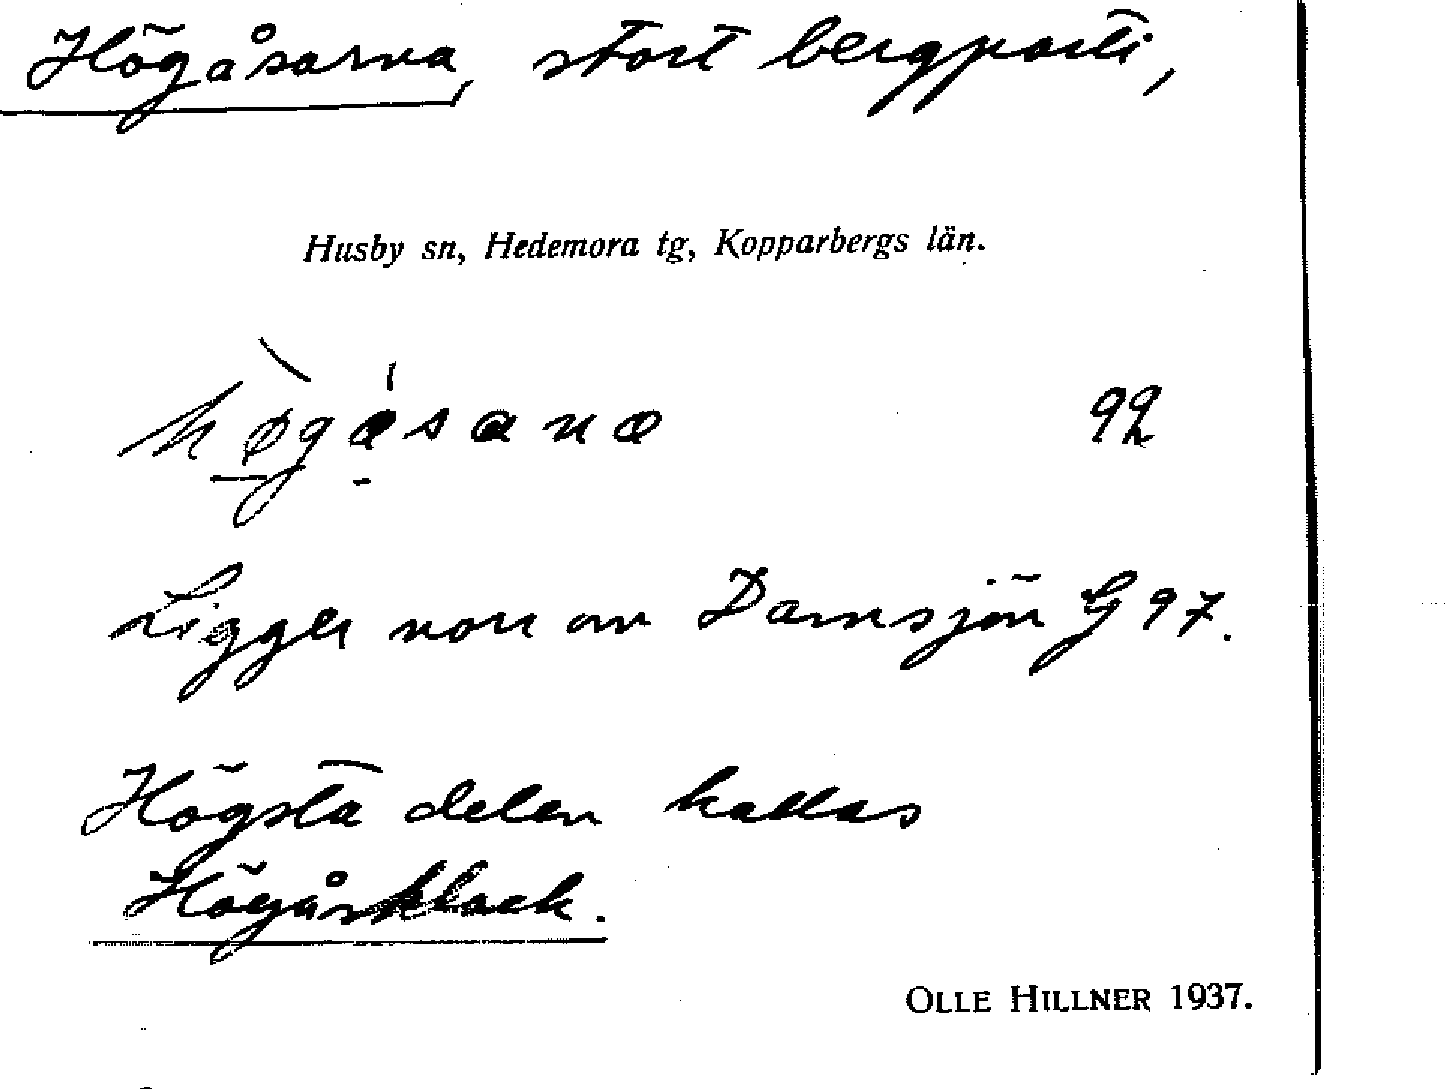 Högåsarna, stort bergparti,
Husby sn, Hedemora tg, Kopparbergs län.
92
Ligger norr om Damsjön G 97.
Högsta delen kallas
Högåsklack.
OLLE HILLNER 1937.